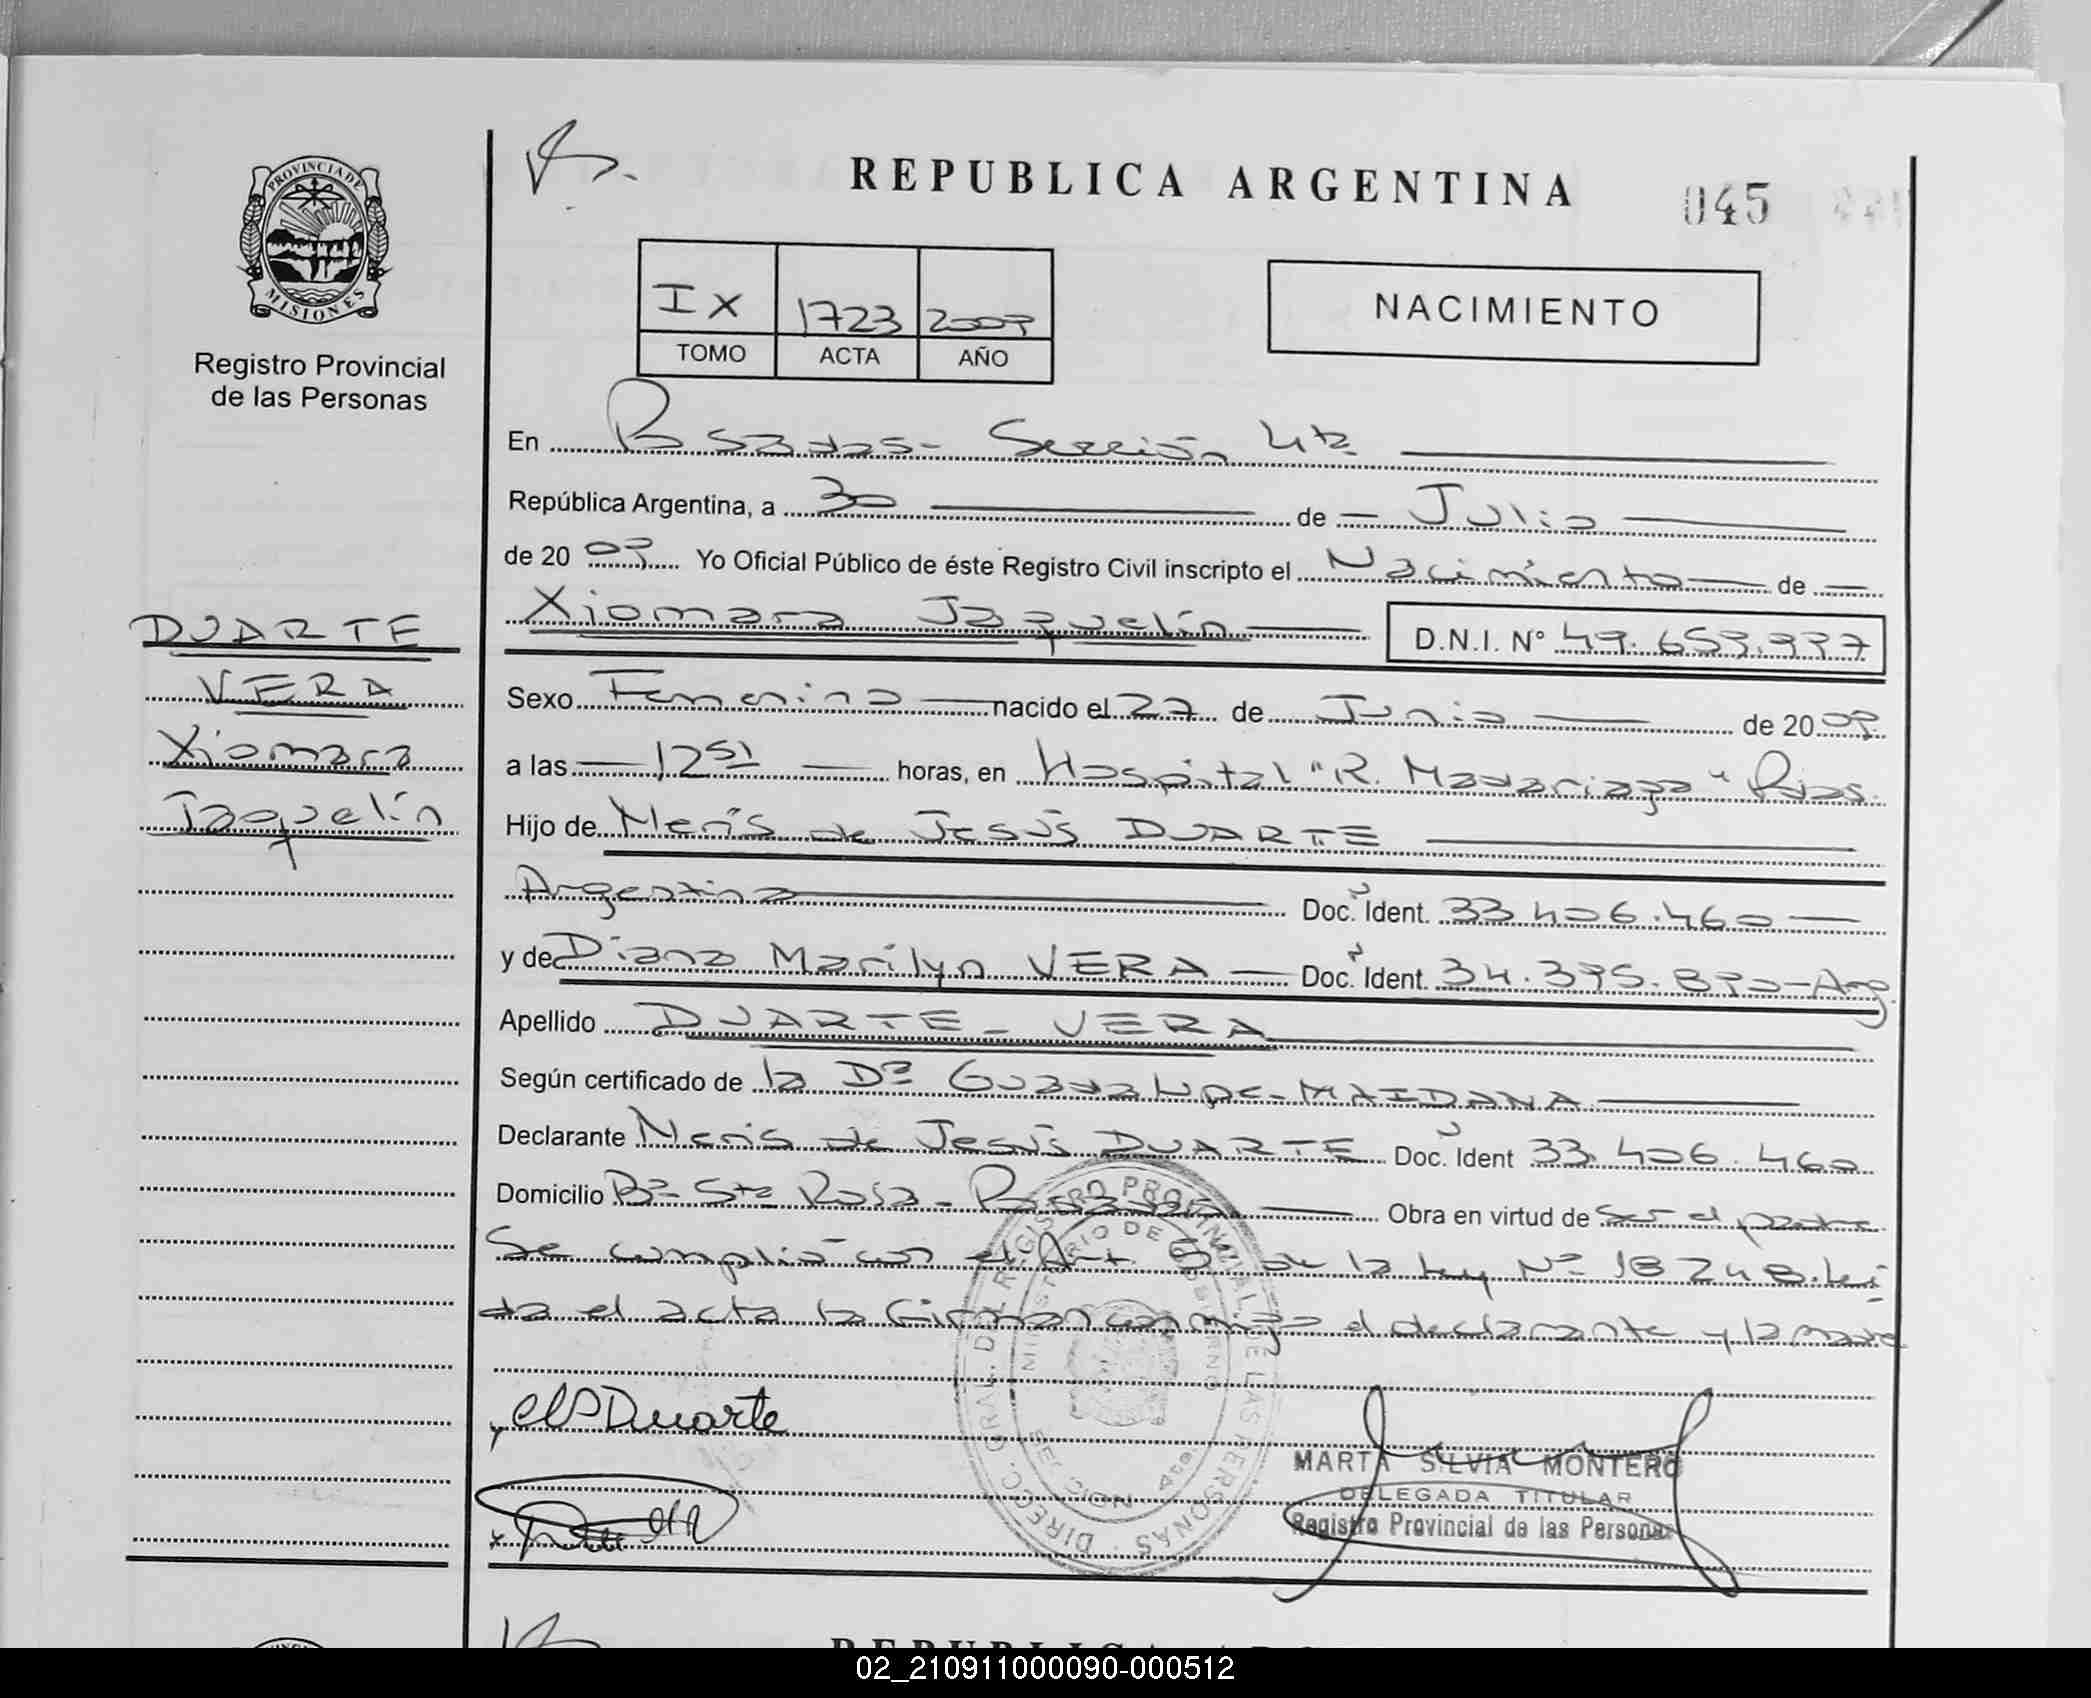 PROVINCIA DE
MISIONES
Registro Provincial
de las Personas
DUARTE
VERA
Xiomara
Jaquelín
REPUBLICA ARGENTINA
045
IX 1723 2009
TOMO ACTA AÑO
NACIMIENTO
En Posadas - Sección 4ta
República Argentina, a 30 de Julio
de 2009 Yo Oficial Público de éste Registro Civil inscripto el Nacimiento de
Xiomara Jaquelín D.N.I. N° 49.653.937
Sexo Femenino nacido el 27 de Junio de 2009
a las 12 51 horas, en Hospital "R. Madariaga" Pdas.
Hijo de Neris de Jesús DUARTE
Argentino Doc. Ident. 33.406.460
y de Diana Marilyn VERA Doc. Ident. 34.395.890 - Arg.
Apellido DUARTE - VERA
Según certificado de la Dra Guadalupe - MAIDANA
Declarante Neris de Jesús DUARTE Doc. Ident 33.406.460
Domicilio Bº Sta Rosa - Posadas Obra en virtud de ser el padre
Se cumplió con el Art. de la Ley Nº 18248. Leí
da el acta la firman conmigo el declarante y la madre
Duarte
MARTA SILVIA MONTERO
DELEGADA TITULAR
Registro Provincial de las Personas
DIRECC. GRAL. DEL REGISTRO PROVINCIAL DE LAS PERSONAS
MINISTERIO DE GOBIERNO
SECCION 4ta
02_210911000090-000512